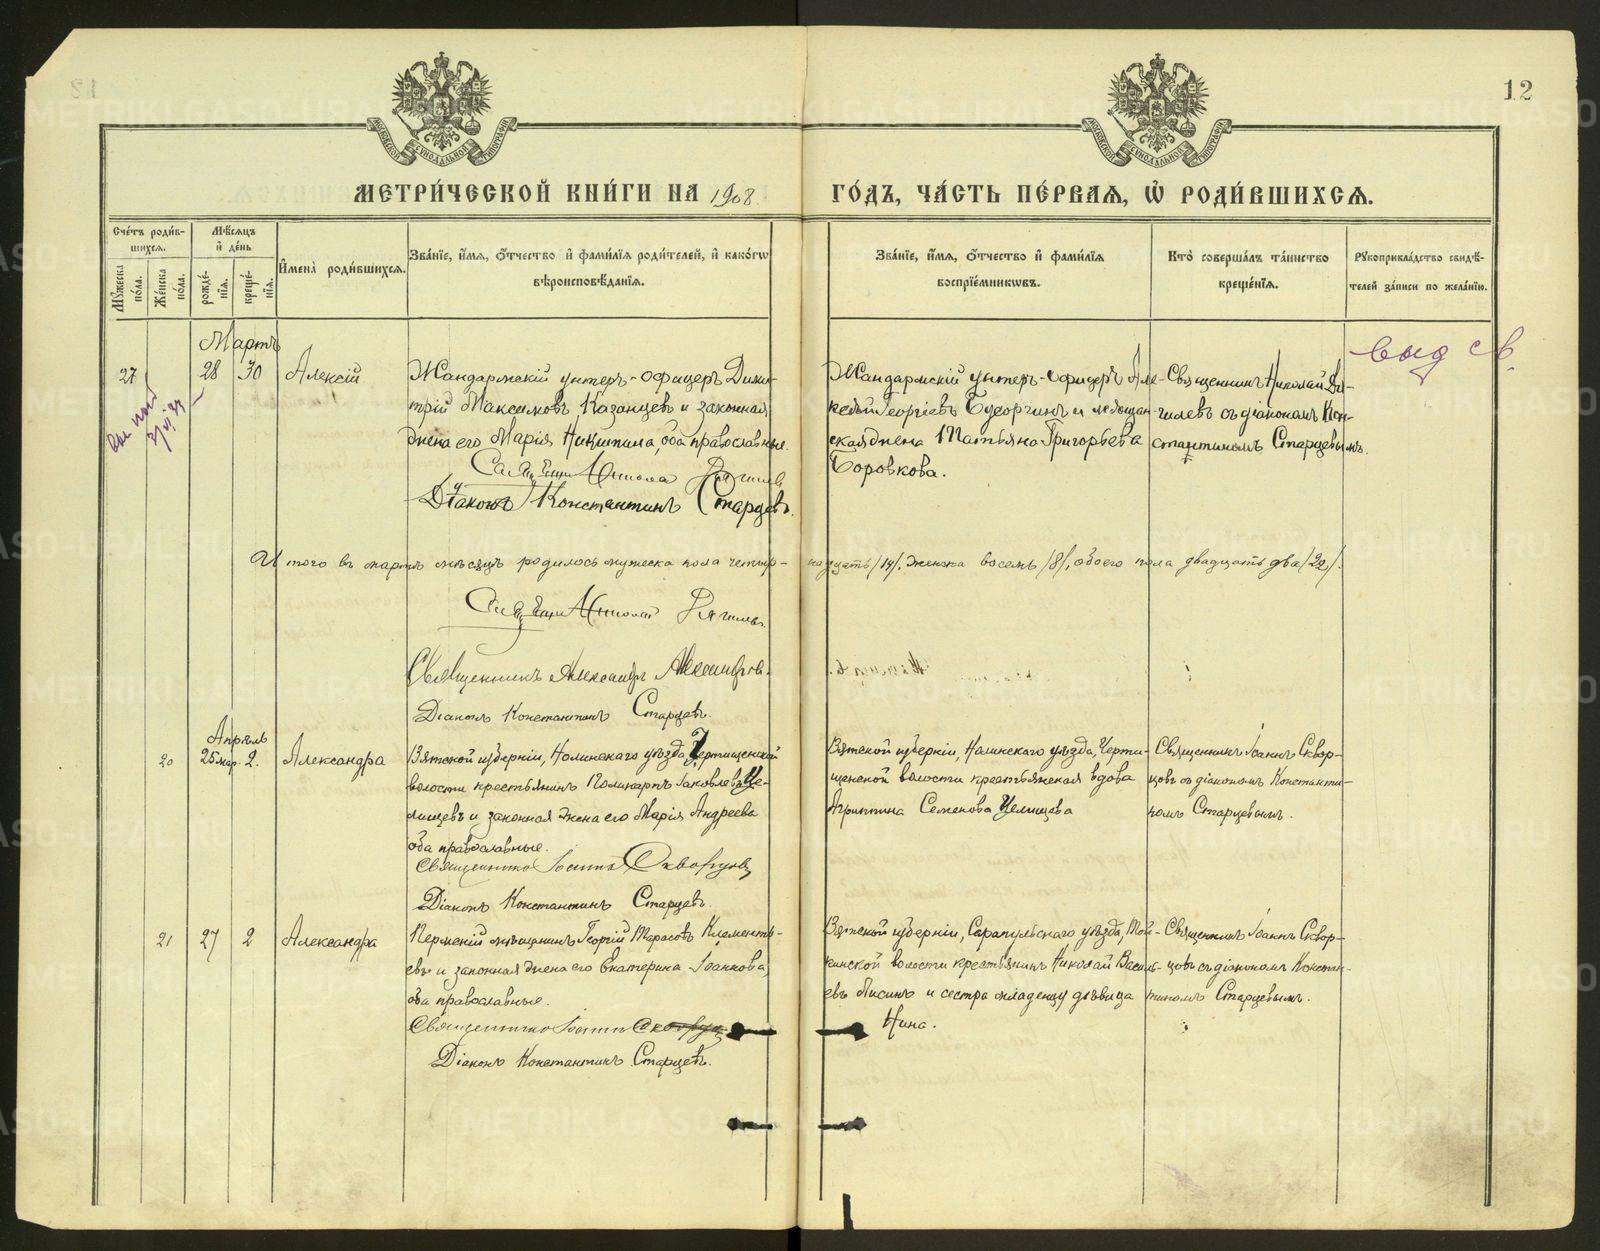 12
МЕТРИ́ЧЕСКОЙ КНИ́ГИ НА 1908 ГО́ДЪ, ЧА́СТЬ ПЕ́РВАѦ, Ѡ҆ РОДИ́ВШИХСѦ.
МОСКОВСКОЙ СѴНОДАЛЬНОЙ ТИПОГРАФІИ
МОСКОВСКОЙ СѴНОДАЛЬНОЙ ТИПОГРАФІИ
Сче́тъ роди́в-
шихсѧ.
Мꙋ́жеска по́ла.
Же́нска по́ла.
Мѣ́сѧцъ
и҆ де́нь
рожде́-
нїѧ.
креще́-
нїѧ.
И҆мена̀ роди́вшихсѧ.
Зва́нїе, и҆́мѧ, ѻ҆́тчество и҆ фами́лїѧ роди́телей, и҆ како́гѡ
вѣроисповѣ́данїѧ.
Зва́нїе, и҆́мѧ, ѻ҆́тчество и҆ фами́лїѧ
воспрїе́мникѡвъ.
Кто̀ соверша́лъ та́инство
креще́нїѧ.
Рꙋкоприкла́дство свидѣ́-
телей за́писи по жела́нїю.
Мартъ
27 28 30 Алексій
Жандармскій унтеръ-офицеръ Дими-
трій Максимовъ Казанцевъ и законная
жена его Марія Никитина, оба православные.
Діаконъ Константинъ Старцевъ.
Жандармскій унтеръ-офицеръ Але-
ксѣй Георгіевъ и мѣщан-
ская жена Татьяна Григорьева
Боровкова.
Священникъ Николай
съ діакономъ Кон-
стантиномъ Старцевымъ.
выд св.
Итого въ мартѣ мѣсяцѣ родилось мужеска пола четыр-надцать /14/, женска восемь /8/, обоего пола двадцать два /22/.
Священникъ Александръ
Діаконъ Константинъ Старцевъ.
Апрѣль
20 25 мар. 2. Александра
Вятской губерніи, Нолинскаго уѣзда, Чертищенской
волости крестьянинъ Поликарпъ Іаковлевъ Це-
лищевъ и законная жена его Марія Андреева
оба православные.
Священникъ Іоаннъ Скворцовъ
Діаконъ Константинъ Старцевъ.
Вятской губерніи, Нолинскаго уѣзда, Черти-
щенской волости крестьянская вдова
Агриппина Семенова Целищева
Священникъ Іоаннъ Сквор-
цовъ съ діакономъ Константи-
номъ Старцевымъ.
21 27 2 Александра
Пермскій мѣщанинъ Георгій Тарасовъ Клементь-
евъ и законная жена его Екатерина Іоаннова,
оба православные.
Священникъ Іоаннъ Скворцовъ
Діаконъ Константинъ Старцевъ.
Вятской губерніи, Сарапульскаго уѣзда, Той-
кинской волости крестьянинъ Николай Василь-
евъ Лисинъ и сестра младенцу дѣвица
Нина.
Священникъ Іоаннъ Сквор-
цовъ съ діакономъ Констан-
тиномъ Старцевымъ.
METRIKI.GASO-URAL.RU